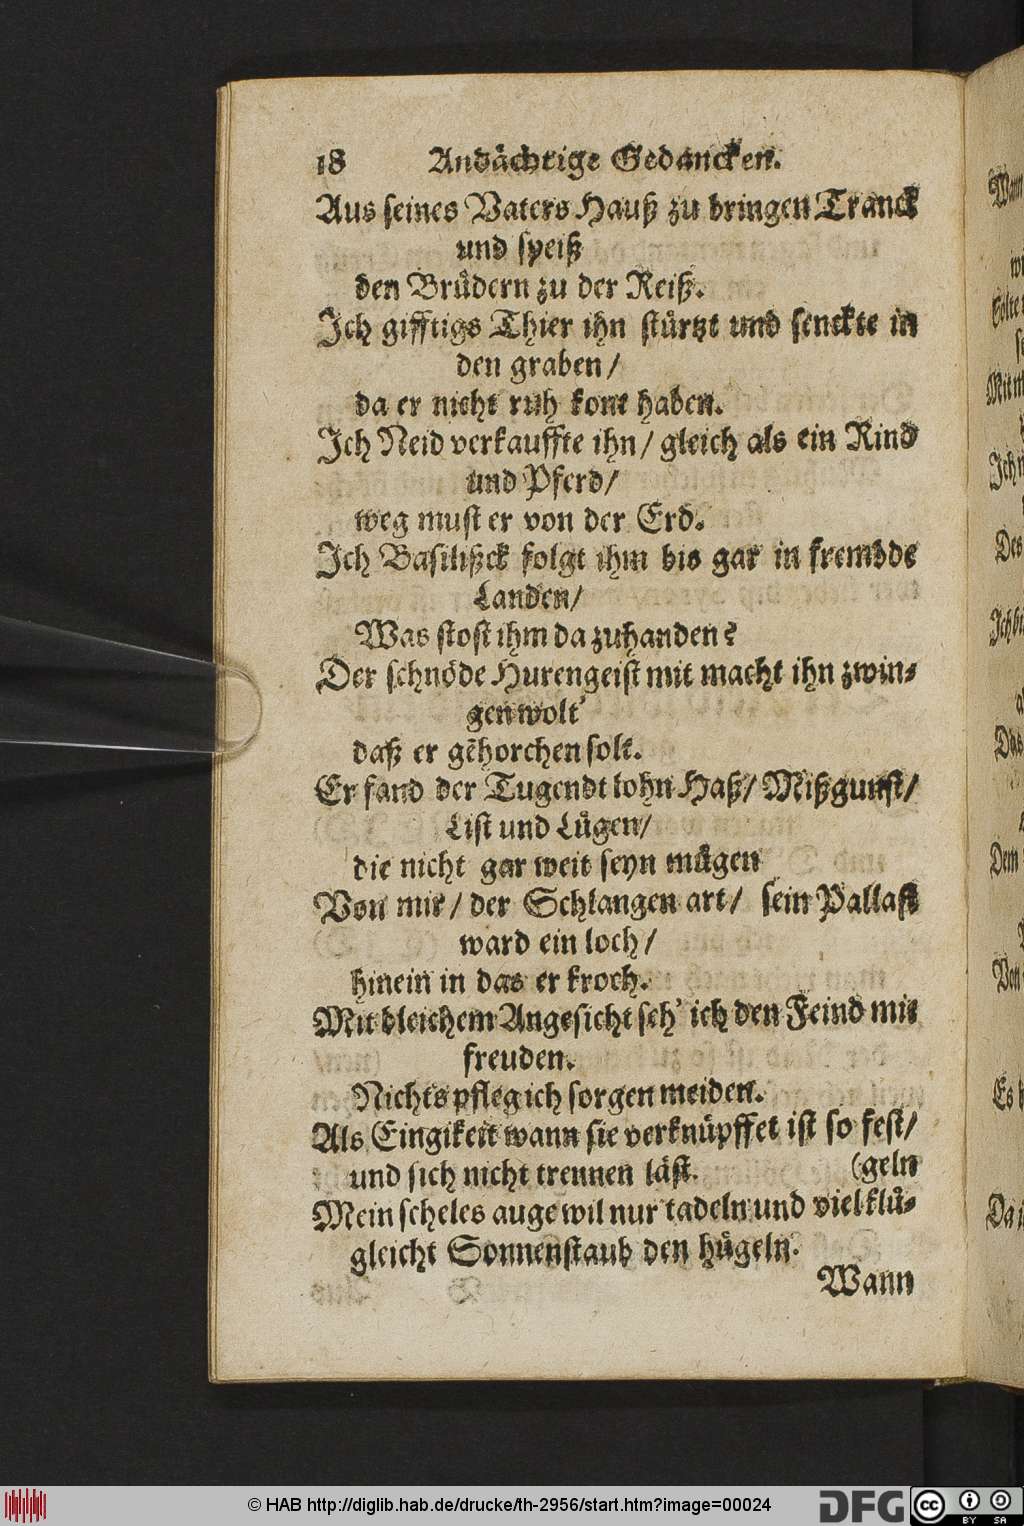 18 Andächtige Gedancken.
Aus seines Vaters Hauß zu bringen Tranck
und speiß
den Brüdern zu der Reiß.
Ich gifftigs Thier ihn stürtzt und senckte in
den graben/
da er nicht ruh kont haben.
Ich Neid verkauffte ihn/ gleich als ein Rind
und Pferd/
weg must er von der Erd.
Ich Basilißck folgt ihm bis gar in frembde
Landen/
Was stost ihm da zuhanden?
Der schnöde Hurengeist mit macht ihn zwin-
gen wolt'
daß er gehorchen solt.
Er fand der Tugendt lohn Haß/ Mißgunst/
List und Lügen/
die nicht gar weit seyn mügen
Von mir/ der Schlangen art/ sein Pallast
ward ein loch/
hinein in das er kroch.
Mit bleichem Angesicht seh' ich den Feind mit
freuden.
Nichts pfleg ich sorgen meiden.
Als Eingikeit wann sie verknüpffet ist so fest/
und sich nicht trennen läst. (geln
Mein scheles auge wil nur tadeln und viel klü-
gleicht Sonnenstaub den hügeln.
Wann
© HAB http://diglib.hab.de/drucke/th-2956/start.htm?image=00024
DFG
cc BY SA